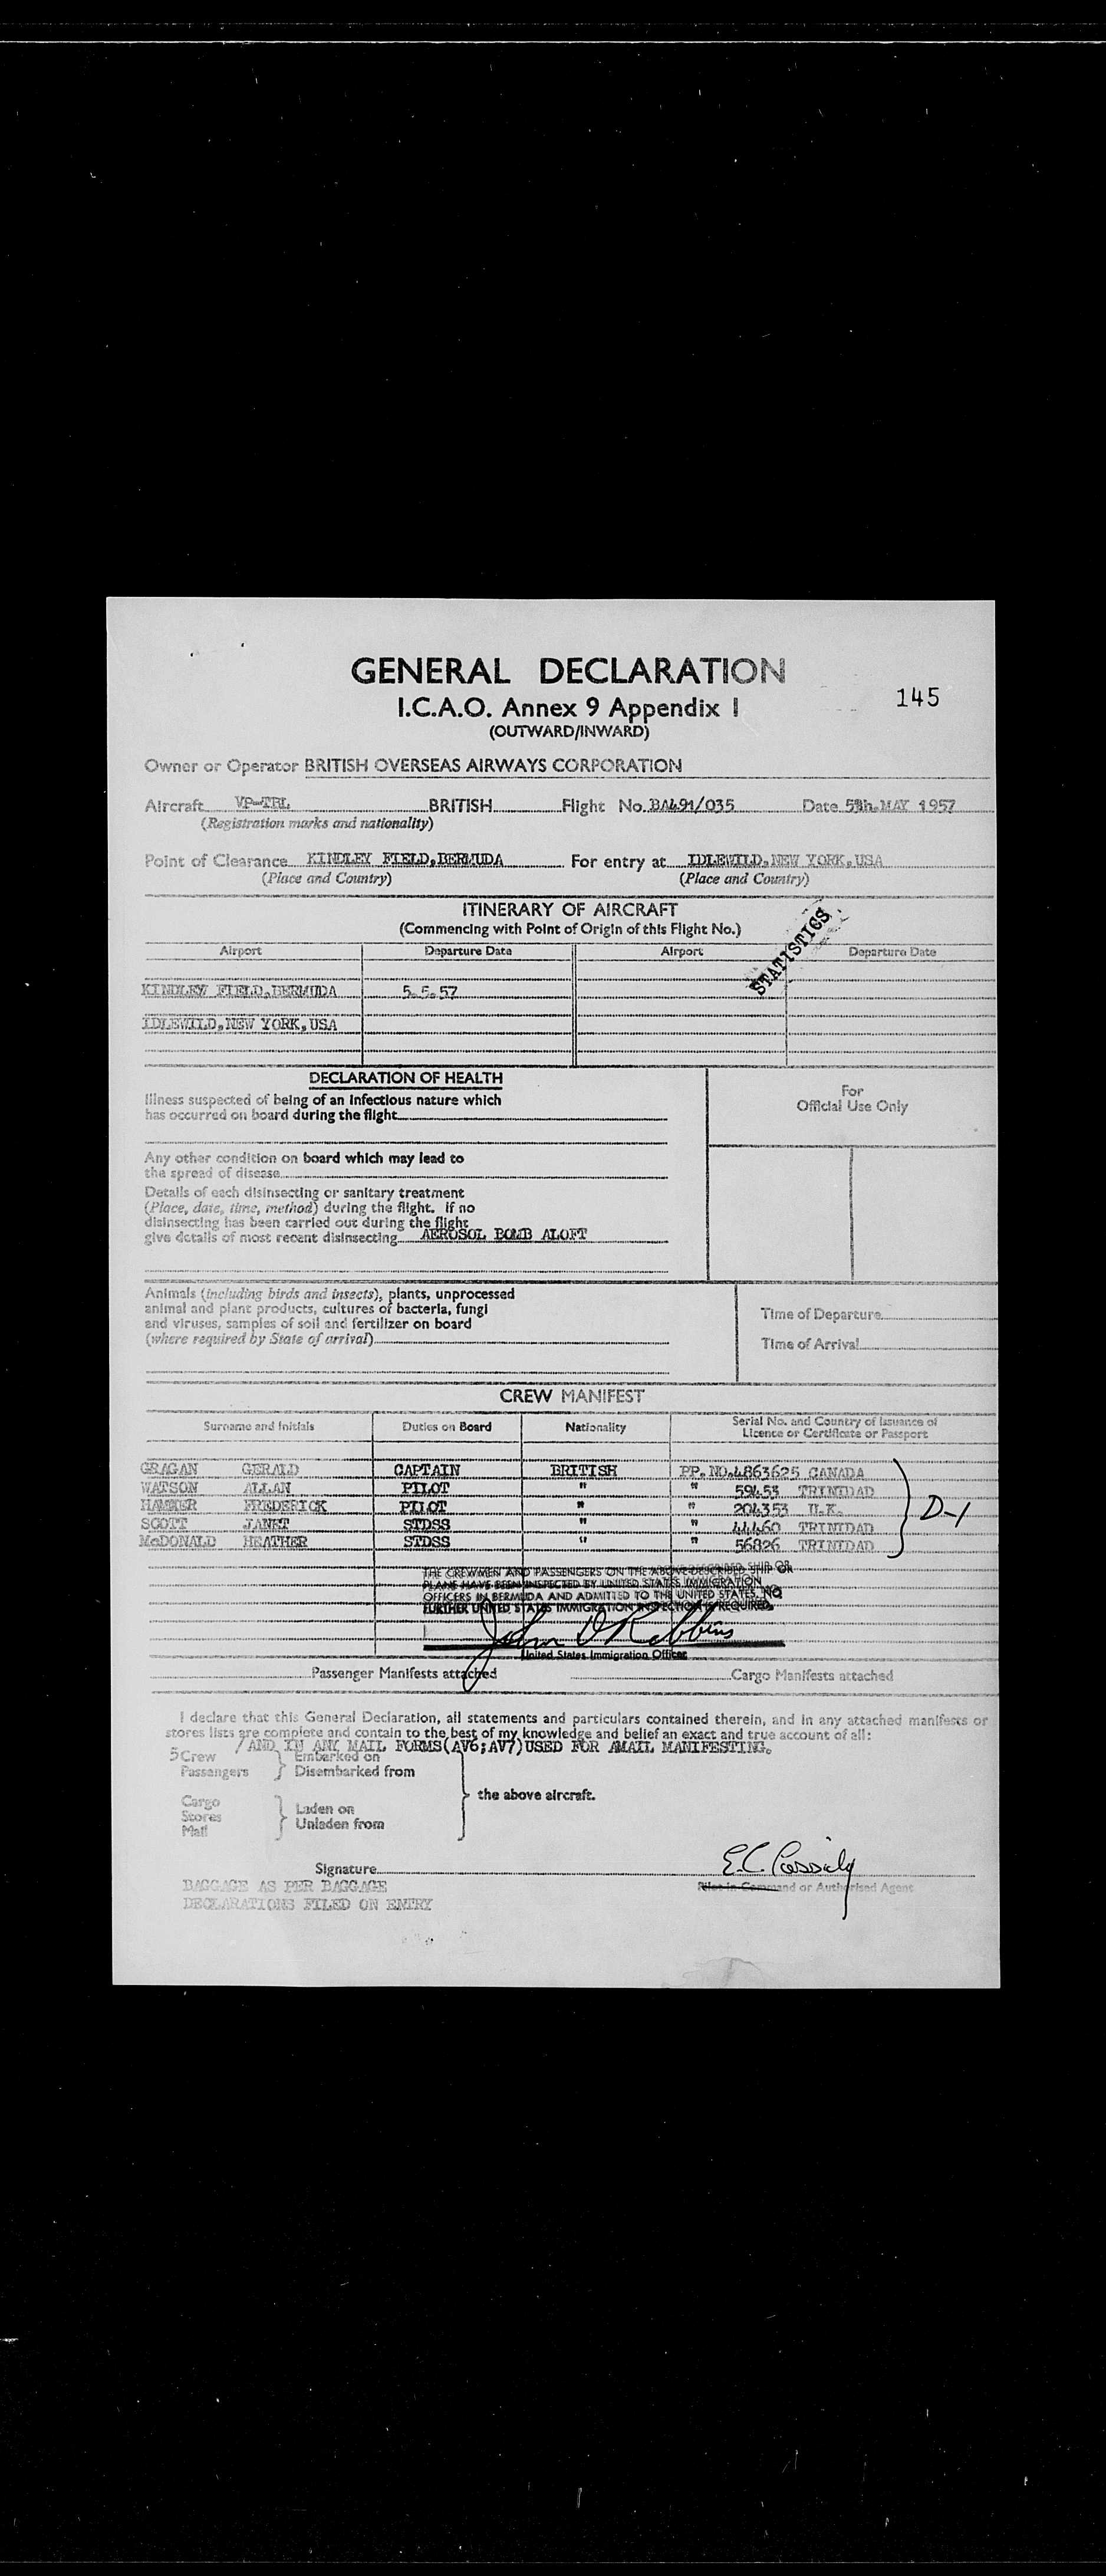 GENERAL DECLARATION
145
I.C.A.O. Annex 9 Appendix 1
(OUTWARD/INWARD)
Owner or Operator BRITISH OVERSEAS AIRWAYS CORPORATION
Aircraft VP-TBL BRITISH Flight No. BA491/035 Date 5th. MAY 1957
(Registration marks and nationality)
Point of Clearance KINDLEY FIELD, BERMUDA For entry at IDLEWILD, NEW YORK, USA
(Place and Country) (Place and Country)
ITINERARY OF AIRCRAFT
(Commencing with Point of Origin of this Flight No.)
STATISTICS
Airport Departure Date Airport Departure Date
KINDLEY FIELD, BERMUDA 5.5.57
IDLEWILD, NEW YORK, USA
DECLARATION OF HEALTH
For
Official Use Only
Illness suspected of being of an infectious nature which
has occurred on board during the flight
Any other condition on board which may lead to
the spread of disease
Details of each disinsecting or sanitary treatment
(Place, date, time, method) during the flight. If no
disinsecting has been carried out during the flight
give details of most recent disinsecting AEROSOL BOMB ALOFT
Animals (including birds and insects), plants, unprocessed
animal and plant products, cultures of bacteria, fungi
and viruses, samples of soil and fertilizer on board
(where required by State of arrival)
Time of Departure
Time of Arrival
CREW MANIFEST
Surname and Initials Duties on Board Nationality Serial No. and Country of Issuance of
Licence or Certificate or Passport
GRAGAN GERALD CAPTAIN BRITISH PP. NO. 4863625 CANADA
WATSON ALLAN PILOT " " 59453 TRINIDAD
FREDERICK PILOT " " 204353 U.K.
SCOTT JANET STDSS " " 44460 TRINIDAD
McDONALD HEATHER STDSS " " 56826 TRINIDAD
D-1
THE CREWMEN AND PASSENGERS ON THE ABOVE DESCRIBED SHIP OR
PLANE HAVE BEEN INSPECTED BY UNITED STATES IMMIGRATION
OFFICERS IN BERMUDA AND ADMITTED TO THE UNITED STATES. NO
FURTHER UNITED STATES IMMIGRATION INSPECTION IS REQUIRED.
John D Robbins
United States Immigration Officer
Passenger Manifests attached Cargo Manifests attached
I declare that this General Declaration, all statements and particulars contained therein, and in any attached manifests or
stores lists are complete and contain to the best of my knowledge and belief an exact and true account of all:
/AND IN ANY MAIL FORMS(AV6;AV7)USED FOR AMAIL MANIFESTING.
5 Crew Embarked on
Passengers Disembarked from
the above aircraft.
Cargo
Stores
Mail
Laden on
Unladen from
Signature E.C. Cassidy
Pilot in Command or Authorised Agent
BAGGAGE AS PER BAGGAGE
DECLARATIONS FILED ON ENTRY